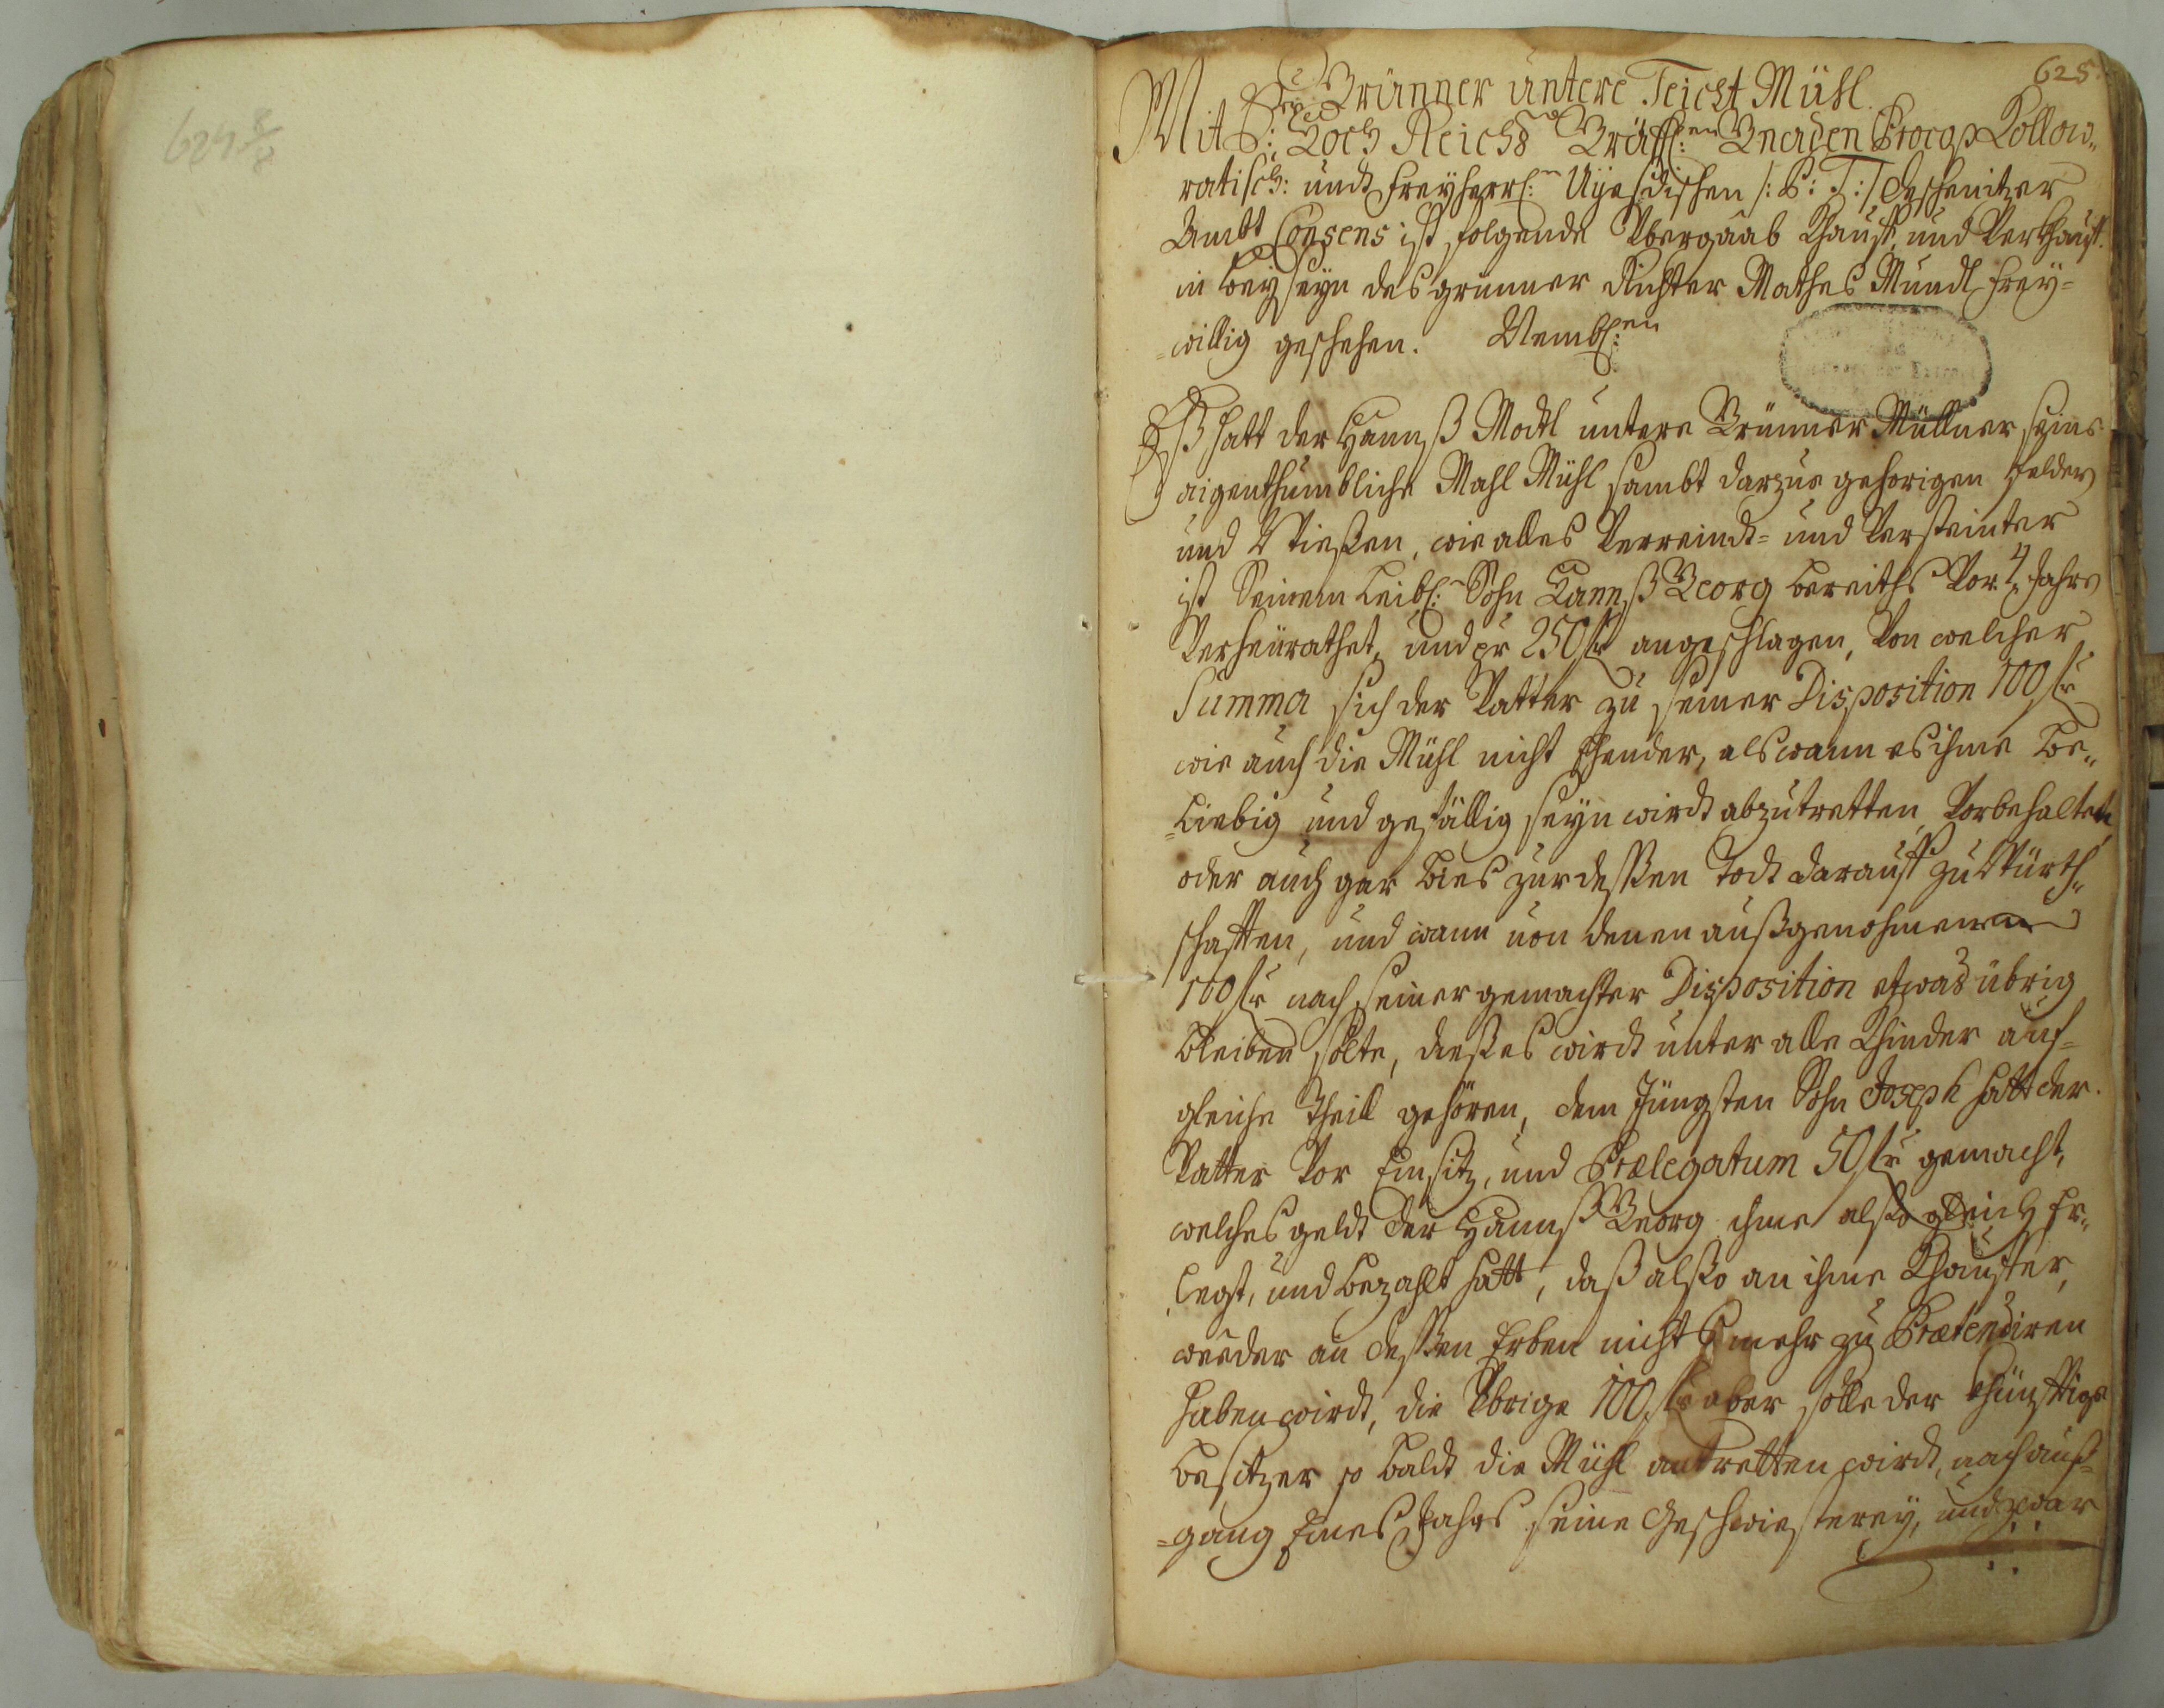 624 8/8
625.
Grünner untere Teicht Mühl.
Mit Hoch Reichs Gräffl:en Gnaden Procop Kollow„
ratisch: undt Freyherrl:n Uyesdischen /: P: T: / Deschenitzer
Ambt Consens ist folgende Vbergaab Khauff, und Verkhauff.
in beyseyn des grunner Richter Mathes Mündl frey=
=willig geschehen. Nembl:en
Eß hatt der Hannß Modl untere Grünner Müllner seine
aigenthumbliche Mahl Mühl sambt darzue gehorigen Felder
und Wießen, wie alles Verreindt= und Versteinter
ist Seinem Leibl:n Sohn Hannß Georg bereiths Vor 4 Jahre
Verheürathet, und pr 250 fr angeschlagen, Von welcher
Summa sich der Vatter zu seiner Disposition 100 fr
wie auch die Mühl nicht Ehender, als wann es ihme be„
=Liebig und gefällig seyn wirdt abzutretten Vorbehalten,
oder auch gar bies zur dessen Todt darauff zu Würth„
schafften, und wann von denen außgenohmenen
100 fr nach seiner gemachter Disposition etwas übrig
bleiben solte, dießes wirdt unter alle Khinder auf=
gleiche Theill gehören, dem Jüngsten Sohn Joseph hatt der
Vatter Vor Einsitz, und Prælegatum 50 fr gemacht,
welches geldt der Hannß Georg ihme alßo gleich Er„
legt, und bezahlt hatt, daß alßo an ihme Khauffer,
weeder an dessen Erben nichts mehr zu Prætendiren
haben wirdt, die Vbrige 100 fr aber solle der khünfftige
besitzer so baldt die Mühl antretten wirdt, nach auß=
=gang Eines Jahrs seine Geschwiesterey, und zwar